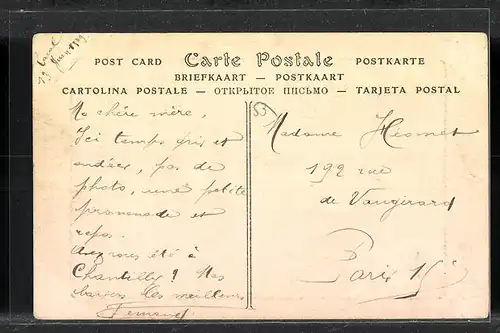 POST CARD Carte Postale POSTKARTE
BRIEFKAART — POSTKAART
CARTOLINA POSTALE — ОТКРЫТОЕ ПИСЬМО — TARJETA POSTAL
19
53
Ma chère mère,
Ici temps gris et
ondées, pas de
photo, une petite
promenade et
repos.
Avez vous été à
Chantilly ? Mes
baisers les meilleurs
Fernand
Madame
192 rue
de Vaugirard
Paris 15